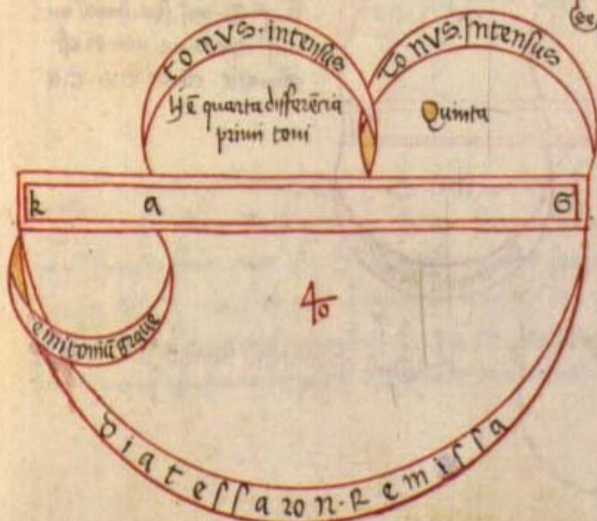 tonvs·intensus
tonvs. Intensus
hec ē quarta differēcia
primi toni
Quinta
k a G
emitoniū
4o
diatessaron·Remissa